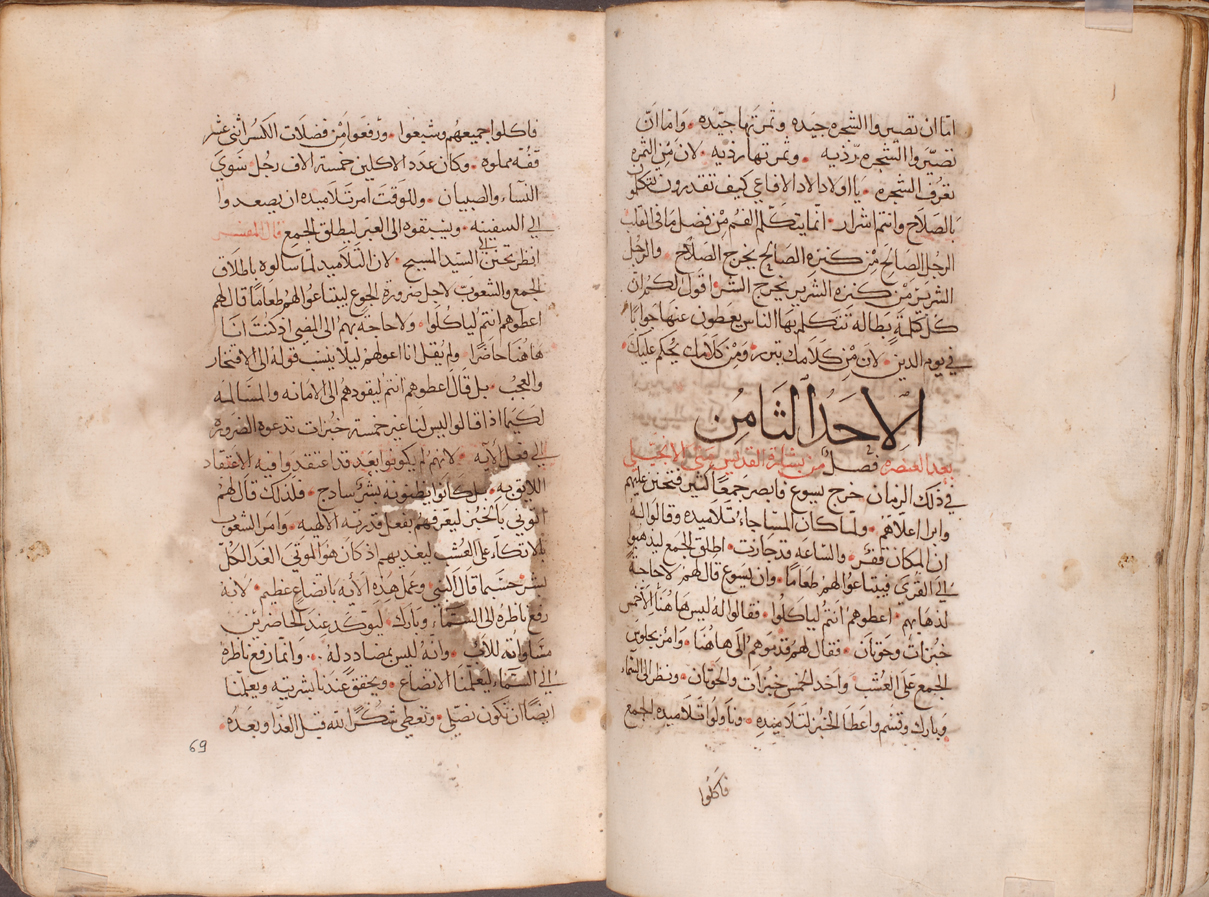 اما ان تصيروا الشجره جيده وثمرتها جيده • واما ان
تصيروا الشجره رديه • وثمرتها رديه • لان من الثمرة
تعرف الشجره • يا اولاد الافاعي كيف تقدرون تتكلموا
بالصلاح وانتم اشرار • انما يتكلم الفم من فضل ما في القلب
الرجل الصالح من كنزه الصالح يخرج الصلاح • والرجل
الشرير من كنزه الشرير يخرج الشر • اقول لكم ان
كل كلمة بطاله تتكلم بها الناس يعطون عنها جوابا
في يوم الدين • لان من كلامك تبرر • ومن كلامك يحكم عليك •
الاحد الثامن
بعد العنصره فصل من بشارة القديس متي الانجيلي
في ذلك الزمان خرج يسوع فابصر جمعا كثير فتحنن عليهم
وابرا اعلاهم • ولما كان المسا جاء تلاميذه وقالوا له
ان المكان قفر • والساعه قد جازت • اطلق الجمع ليذهبوا
الي القري فيبتاعوا لهم طعاما • وان يسوع قال لهم لا حاجة
لذهابهم • اعطوهم انتم لياكلوا • فقالوا له ليس هاهنا الا خمس
خبزات وحوتان • فقال لهم قدموهم الي هاهنا • وامر بجلوس
الجمع علي العشب • واخد الخمس خبزات والحوتان • ونظر الى السماء
وبارك وقسم واعطا الخبز لتلاميذه • وناولوا تلاميذه الجمع
فاكلوا
فاكلوا جميعهم وشبعوا • ورفعوا من فضلات الكسر اثنى عشر
قفه مملوه • وكان عدد الاكلين خمسة الاف رجل سوي
النساء والصبيان • وللوقت امر تلاميذه ان يصعدوا
الي السفينه • ويسبقوه الى العبر ليطلق الجمع قال المفسر
انظر تحنن السيد المسيح • لان التلاميذ لما سالوه باطلاق
الجمع والشعوب لاجل ضرورة الجوع ليبتاعوا لهم طعاما قال لهم
اعطوهم انتم لياكلوا • ولا حاجه بهم الى المضي اذ كنت انا
هاهنا حاضرا • ولم يقل انا اعولهم ليلا ينسب قوله الى الافتخار
والعجب • بل قال اعطوهم انتم ليقودهم الى الامانه والمسالمه
لكيما اذا قالوا ليس لنا غير خمسة خبزات تدعوه الضرورة
الي فعل الايه • لانهم لم يكونوا بعد قد اعتقدوا فيه الاعتقاد
اللايق به • بل كانوا يظنونه بشر سادج • فلذلك قال لهم
ايتوني بالخبز ليعرفهم بفعل قدرته الالهيه • وامر الشعوب
للاتكاء على العشب ليغديهم اذ كان هو الموتي الغدا لكل
بشر حسبما قال النبي وعمل هذه الايه باتضاع عظيم • لانه
رفع ناظره الى السماء وبارك • ليوكد عند الحاضرين
مساواته للاب • وانه ليس بمضادد له • وانما رفع ناظره
الي السماء ليعلمنا الاتضاع • ويحقق عندنا بشريته ويعلمنا
ايضا ان نكون نصلي • ونعطي شكرا لله قبل الغدا وبعده •
69